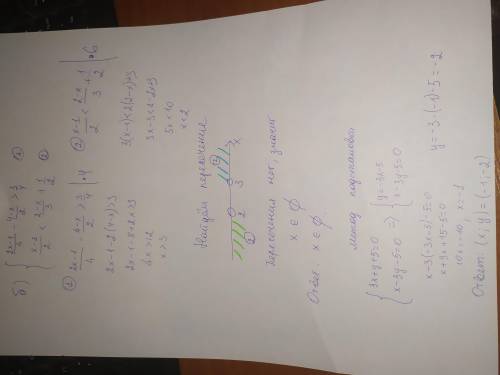 б) { (2x-1)/4 - (4-x)/2 > 3/4 ①
(x-1)/2 < (2-x)/3 + 1/2 ②
① (2x-1)/4 - (4-x)/2 > 3/4 | •4
2x-1-2(4-x)>3
2x-1-8+2x>3
4x>12
x>3
② (x-1)/2 < (2-x)/3 + 1/2 | •6
3(x-1)<2(2-x)+3
3x-3<4-2x+3
5x<10
x<2
Найдём пересечение
① 2 3 x
②
Пересечения нет, значит
x ∈ ∅
Ответ. x ∈ ∅.
метод подстановки
{ 3x+y+5=0
x-3y-5=0 => { y=-3x-5
x-3y-5=0
x-3(-3x-5)-5=0
x+9x+15-5=0
10x=-10, x=-1
y=-3·(-1)-5=-2
Ответ: (x; y) = (-1; -2)